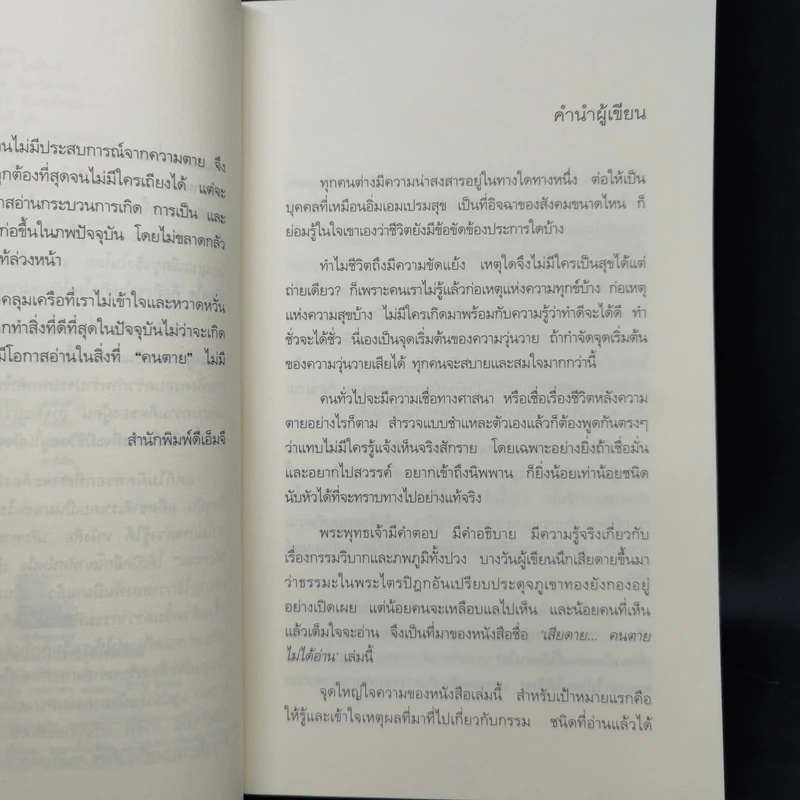 นไม่มีประสบการณ์จากความตาย จึง
ูกต้องที่สุดจนไม่มีใครเถียงได้ แต่จะ
าสอ่านกระบวนการเกิด การเป็น และ
ก่อขึ้นในภพปัจจุบัน โดยไม่ขลาดกลัว
ท้ล่วงหน้า
คลุมเครือที่เราไม่เข้าใจและหวาดหวั่น
กทำสิ่งที่ดีที่สุดในปัจจุบันไม่ว่าจะเกิด
มีโอกาสอ่านในสิ่งที่ “คนตาย” ไม่มี
สำนักพิมพ์ดีเอ็มจี
คำนำผู้เขียน
ทุกคนต่างมีความน่าสงสารอยู่ในทางใดทางหนึ่ง ต่อให้เป็น
บุคคลที่เหมือนอิ่มเอมเปรมสุข เป็นที่อิจฉาของสังคมขนาดไหน ก็
ย่อมรู้ในใจเขาเองว่าชีวิตยังมีข้อขัดข้องประการใดบ้าง
ทำไมชีวิตถึงมีความขัดแย้ง เหตุใดจึงไม่มีใครเป็นสุขได้แต่
ถ่ายเดียว? ก็เพราะคนเราไม่รู้แล้วก่อเหตุแห่งความทุกข์บ้าง ก่อเหตุ
แห่งความสุขบ้าง ไม่มีใครเกิดมาพร้อมกับความรู้ว่าทำดีจะได้ดี ทำ
ชั่วจะได้ชั่ว นี่เองเป็นจุดเริ่มต้นของความวุ่นวาย ถ้ากำจัดจุดเริ่มต้น
ของความวุ่นวายเสียได้ ทุกคนจะสบายและสมใจมากกว่านี้
คนทั่วไปจะมีความเชื่อทางศาสนา หรือเชื่อเรื่องชีวิตหลังความ
ตายอย่างไรก็ตาม สำรวจแบบชำแหละตัวเองแล้วก็ต้องพูดกันตรงๆ
ว่าแทบไม่มีใครรู้แจ้งเห็นจริงสักราย โดยเฉพาะอย่างยิ่งถ้าเชื่อมั่น
และอยากไปสวรรค์ อยากเข้าถึงนิพพาน ก็ยิ่งน้อยเท่าน้อยชนิด
นับหัวได้ที่จะทราบทางไปอย่างแท้จริง
พระพุทธเจ้ามีคำตอบ มีคำอธิบาย มีความรู้จริงเกี่ยวกับ
เรื่องกรรมวิบากและภพภูมิทั้งปวง บางวันผู้เขียนนึกเสียดายขึ้นมา
ว่าธรรมะในพระไตรปิฎกอันเปรียบประดุจภูเขาทองยังกองอยู่
อย่างเปิดเผย แต่น้อยคนจะเหลือบแลไปเห็น และน้อยคนที่เห็น
แล้วเต็มใจจะอ่าน จึงเป็นที่มาของหนังสือชื่อ ‘เสียดาย... คนตาย
ไม่ได้อ่าน’ เล่มนี้
จุดใหญ่ใจความของหนังสือเล่มนี้ สำหรับเป้าหมายแรกคือ
ให้รู้และเข้าใจเหตุผลที่มาที่ไปเกี่ยวกับกรรม ชนิดที่อ่านแล้วได้